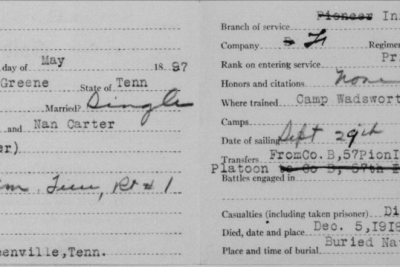 day of May 1897
Greene State of Tenn
Married? Single
and Nan Carter
er)
Tenn, Rt #1
eenville, Tenn.
Pioneer In
Branch of service
Company B F Regimen
Pr
Rank on entering service
Honors and citations none
Where trained Camp Wadswort
Camps
Date of sailing Sept 29th
Transfers FromCo.B,57PionI
Platoon to Co B, 57th
Battles engaged in
Casualties (including taken prisoner) Di
Died, date and place Dec. 5, 1918
Buried Na
Place and time of burial